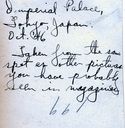 Imperial Palace,
Tokyo, Japan.
Oct. 46
Taken from the same
spot as other pictures
you have probably
seen in magazines
199